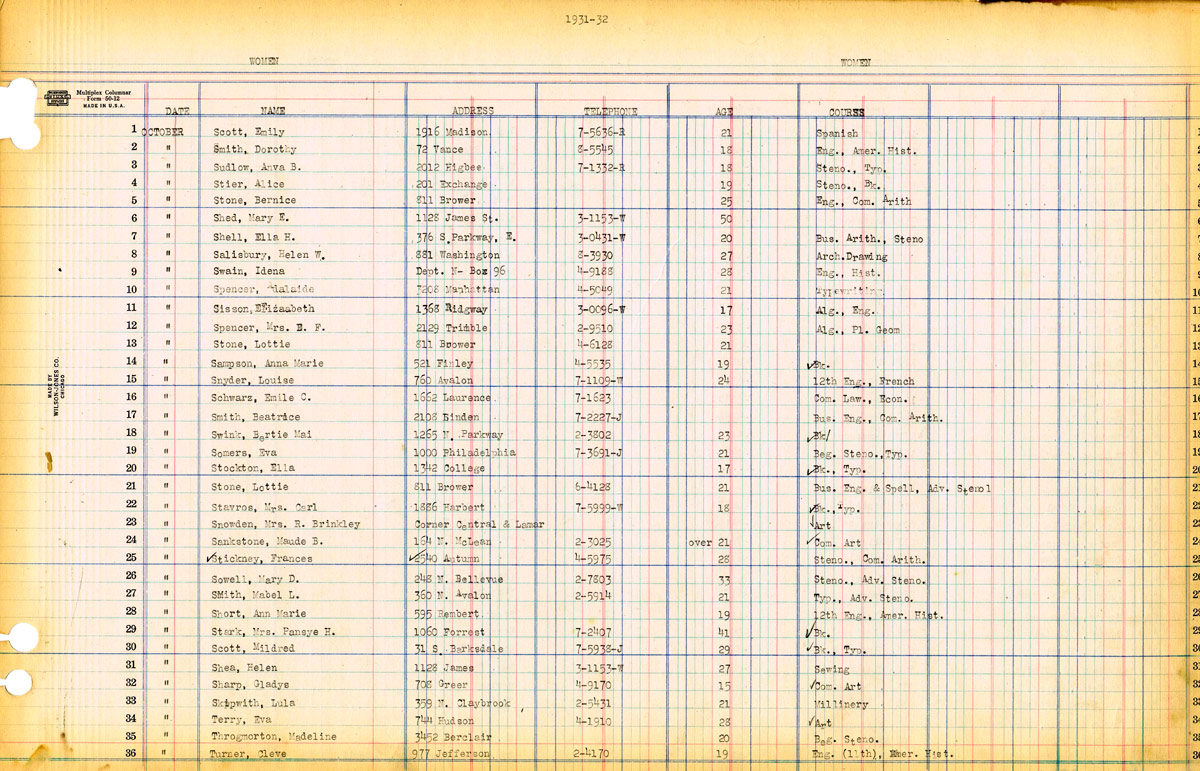 1931-32
WOMEN WOMEN
Multiplex Columnar
Form 50-12
MADE IN U.S.A.
DATE NAME ADDRESS TELEPHONE AGE COURSE
1 OCTOBER Scott, Emily 1916 Madison 7-5636-R 21 Spanish
2 " Smith, Dorothy 72 Vance 8-5545 18 Eng., Amer. Hist. 2
3 " Sudlow, Anva B. 2012 Higbee 7-1332-R 18 Steno., Typ. 3
4 " Stier, Alice 201 Exchange 19 Steno., Bk. 4
5 " Stone, Bernice 811 Brower 25 Eng., Com. Arith 5
6 " Shed, Mary E. 1128 James St. 3-1153-W 50 6
7 " Shell, Ella H. 376 S. Parkway, E. 3-0431-W 20 Bus. Arith., Steno 7
8 " Salisbury, Helen W. 881 Washington 8-3930 27 Arch.Drawing 8
9 " Swain, Idena Dept. N- Box 96 4-9188 28 Eng., Hist. 9
10 " Spencer, Adalaide 3208 Manhattan 4-5049 21 Typewriting 10
11 " Sisson, Elizaabeth 1368 Ridgway 3-0096-W 17 Alg., Eng. 11
12 " Spencer, Mrs. E. F. 2129 Trimble 2-9510 23 Alg., Pl. Geom 12
13 " Stone, Lottie 811 Brower 4-6128 21 13
14 " Sampson, Anna Marie 521 Finley 4-5535 19 ✓Bk. 14
15 " Snyder, Louise 760 Avalon 7-1109-W 24 12th Eng., French 15
MADE BY
WILSON-JONES CO.
CHICAGO
16 " Schwarz, Emile C. 1662 Laurence 7-1623 Com. Law., Econ. 16
17 " Smith, Beatrice 2108 Linden 7-2227-J Bus. Eng., Com. Arith. 17
18 " Swink, Bertie Mai 1265 N. Parkway 2-3802 23 ✓Bk/ 18
19 " Somers, Eva 1000 Philadelphia 7-3691-J 21 Beg. Steno.,Typ. 19
20 " Stockton, Ella 1342 College 17 ✓Bk., Typ. 20
21 " Stone, Lottie 811 Brower 6-4128 21 Bus. Eng. & Spell, Adv. Stenol 21
22 " Stavros, Mrs. Carl 1886 Harbert 7-5999-W 18 ✓Bk., Typ. 22
23 " Snowden, Mrs. R. Brinkley Corner Central & Lamar ✓Art 23
24 " Sankstone, Maude B. 164 N. McLean 2-3025 over 21 ✓Com. Art 24
25 " ✓Stickney, Frances ✓2540 Autumn 4-5975 28 Steno., Com. Arith. 25
26 " Sowell, Mary D. 248 N. Bellevue 2-7803 33 Steno., Adv. Steno. 26
27 " SMith, Mabel L. 360 N. Avalon 2-5914 21 Typ., Adv. Steno. 27
28 " Short, Ann Marie 595 Rembert 19 12th Eng., Amer. Hist. 28
29 " Stark, Mrs. Pansye H. 1060 Forrest 7-2407 41 ✓Bk. 29
30 " Scott, Mildred 31 S. Barksdale 7-5938-J 29 ✓Bk., Typ. 30
31 " Shea, Helen 1128 James 3-1153-W 27 Sewing 31
32 " Sharp, Gladys 708 Greer 4-9170 15 ✓Com. Art 32
33 " Skipwith, Lula 359 N. Claybrook 2-5431 21 Millinery 33
34 " Terry, Eva 744 Hudson 4-1910 28 ✓Art 34
35 " Throgmorton, Madeline 3452 Berclair 20 Beg. Steno. 35
36 " Turner, Cleve 977 Jefferson 2-4170 19 Eng. (11th), Amer. Hist. 36